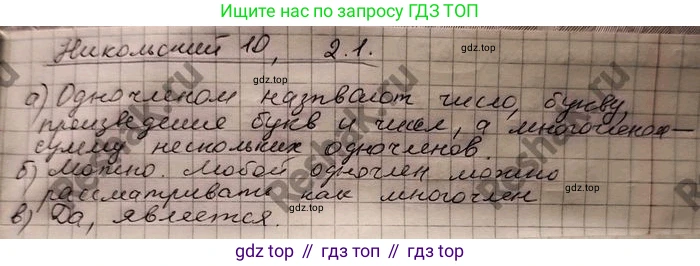 Ищите нас по запросу ГДЗ ТОП
Никольский 10, 2.1.
gdz.top
а) Одночленом называют число, букву,
произведение букв и чисел, а многочленом -
сумму нескольких одночленов.
б) Можно. Любой одночлен можно
рассматривать как многочлен
gdz.top
в) Да, является.
gdz.top // гдз.топ // gdz.top // гдз.топ // gdz.top
Reshak.ru